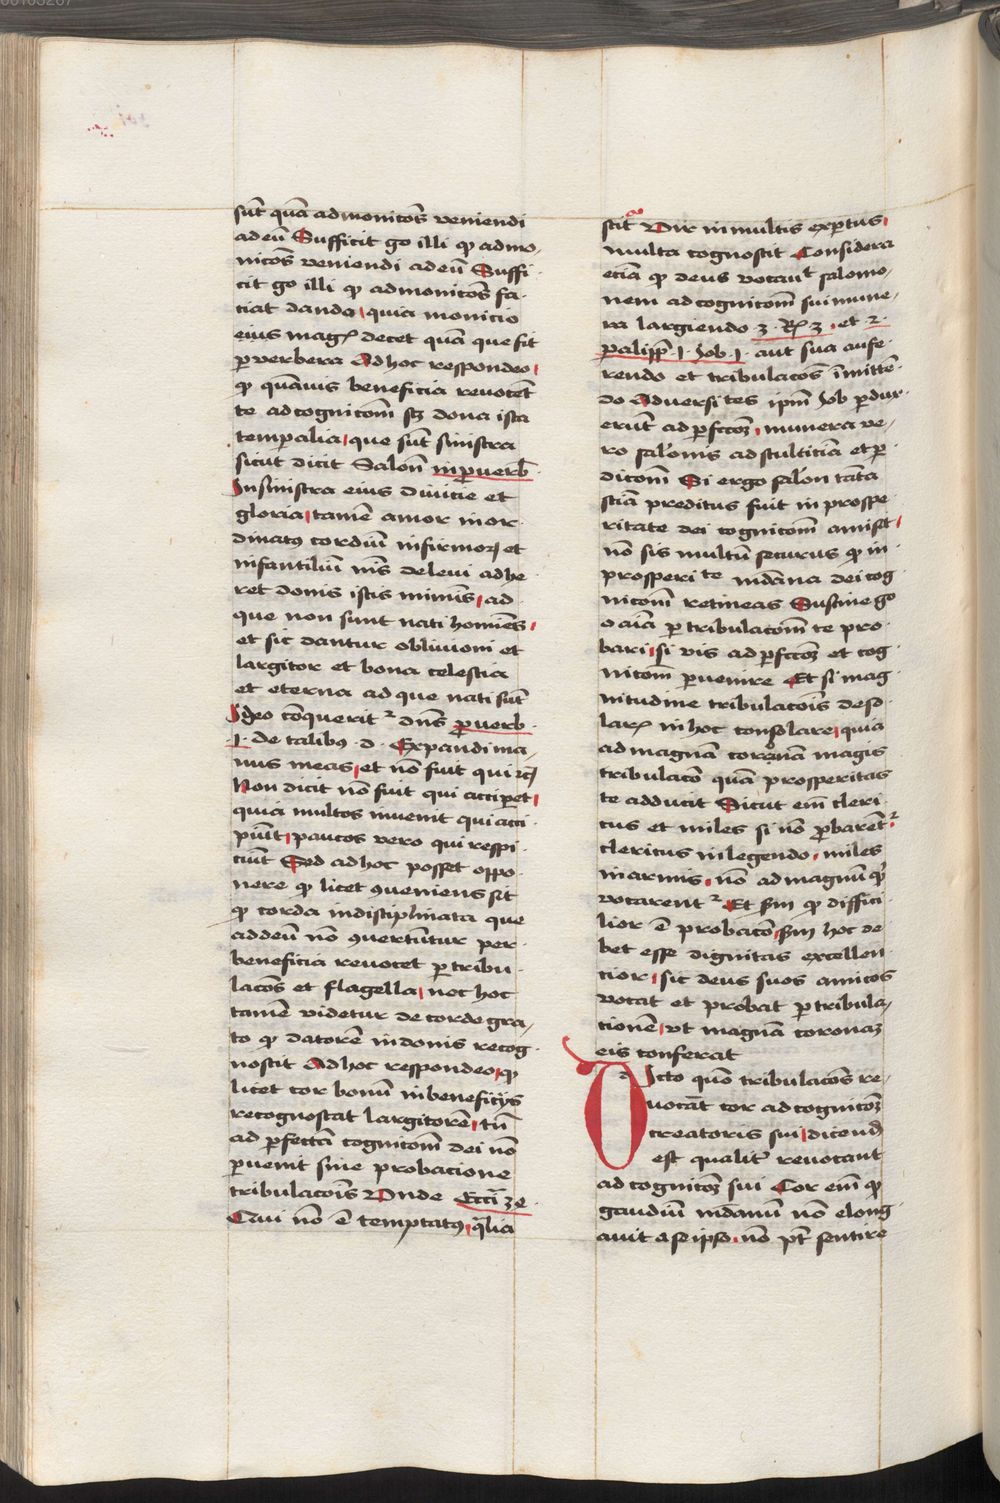 sūt quā admonicōs veniendi
ad eū Sufficit go illi ꝙ admo-
nicōs veniendi ad eū Suffi-
cit go illi ꝙ admonicōs fa-
ciat dando quia monicio
eius magꝭ decet quā que fit
ꝑ verbera Ad hoc respondeo
ꝙ quāuis beneficia reuocēt
te ad cognicōm sꝫ dona ista
temporalia que sūt sinistra
sicut dicit Salom̄ in ꝓuerb̄
In sinistra eius diuicie et
gloria tamē amor inor-
dinatꝰ cordiū infirmoꝝ et
infantiliū nīs de leui adhe-
ret donis istis minīs ad
que non sunt nati homīes
et sic dantur obliuioni et
largitor et bona celestia
et eterna ad que nati sūt
Ideo cōquerit² dn̄s ꝓuerb
.1. de talibꝰ .d. Expandi ma-
nus meas et nō fuit qui
Non dicit nō fuit qui acciperet
quia multos inuenit qui acci-
piūt paucos vero qui respi-
ciūt Sed ad hoc posset oppo-
nere ꝙ licet ꝯueniens sit
ꝙ corda indisciplinata que
ad deū nō ꝯuertūtur per
beneficia reuocet ꝑ tribu-
lacōs et flagella nec hoc
tamē videtur de corde gra-
to ꝙ datorē in donis recog-
noscit Ad hoc respondeo ꝙ
licet cor bonū in beneficijs
recognoscat largitorē tn̄
ad ꝑfectā cognicōm dei nō
ꝑuenit sine probacione
tribulacōis Vnde Ecci 34
Qui nō ē temptatꝰ qualia
scit Vir in multis expertus
multa cognoscit Considera
eciā ꝙ deus vocauit salomo-
nem ad cognicōm sui mune-
ra largiendo 3. Rꝭ .3. et 2.
palipp̄ .1. Job .1. aut sua aufe-
rendo et tribulacōs īmitte-
do Aduersites ipm̄ Job ꝑdux-
erūt ad ꝑfccōꝫ munera ve-
ro salomis ad stulticiā et ꝑ-
dicōm Si ergo salom̄ tāta
sciā preditus fuit in prospe-
ritate dei cognicōm amisit
nō sis multū securus ꝙ in
prosperite mūdana dei cog-
nicōm retineas Sustine go
o aīa ꝑ tribulacōm te pro-
bari si vis ad ꝑfccōꝫ et cog-
nicōm ꝑuenire Et si mag-
nitudine tribulacōis deso-
larꝭ in hoc consolare quia
ad magnā coronam magis
tribulacō quā prosperitas
te adducit Sicut eīm cleri-
cus et miles si nō ꝓbarent²
clericus in legendo miles
in armis nō ad magnū quid
vocarent² Et sm̄ ꝙ diffici-
lior ē probacō sm̄ hoc de-
bet esse dignitas excellen-
cior sic deus suos amicos
vocat et probat ꝑ tribula-
cionē vt magnā coronaꝫ
eis conferat
Dicto quō tribulacōs re-
uocāt cor ad cognicōꝫ
creatoris sui dicend̄
est qualit̄ reuocant
ad cognicōꝫ sui Cor eīm ꝙ
gaudiū mūdanū nō elong-
auit a se ipso nō pt̄ sentire